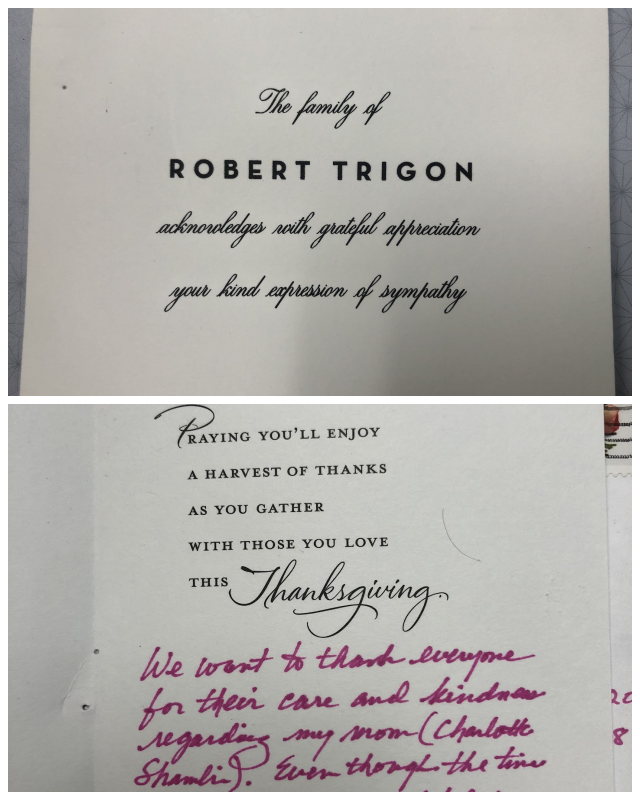 The family of
ROBERT TRIGON
acknowledges with grateful appreciation
your kind expression of sympathy
PRAYING YOU'LL ENJOY
A HARVEST OF THANKS
AS YOU GATHER
WITH THOSE YOU LOVE
THIS Thanksgiving.
We want to thank everyone
for their care and kindness
regarding my mom (Charlotte
Shamlin). Even though the time
20
8